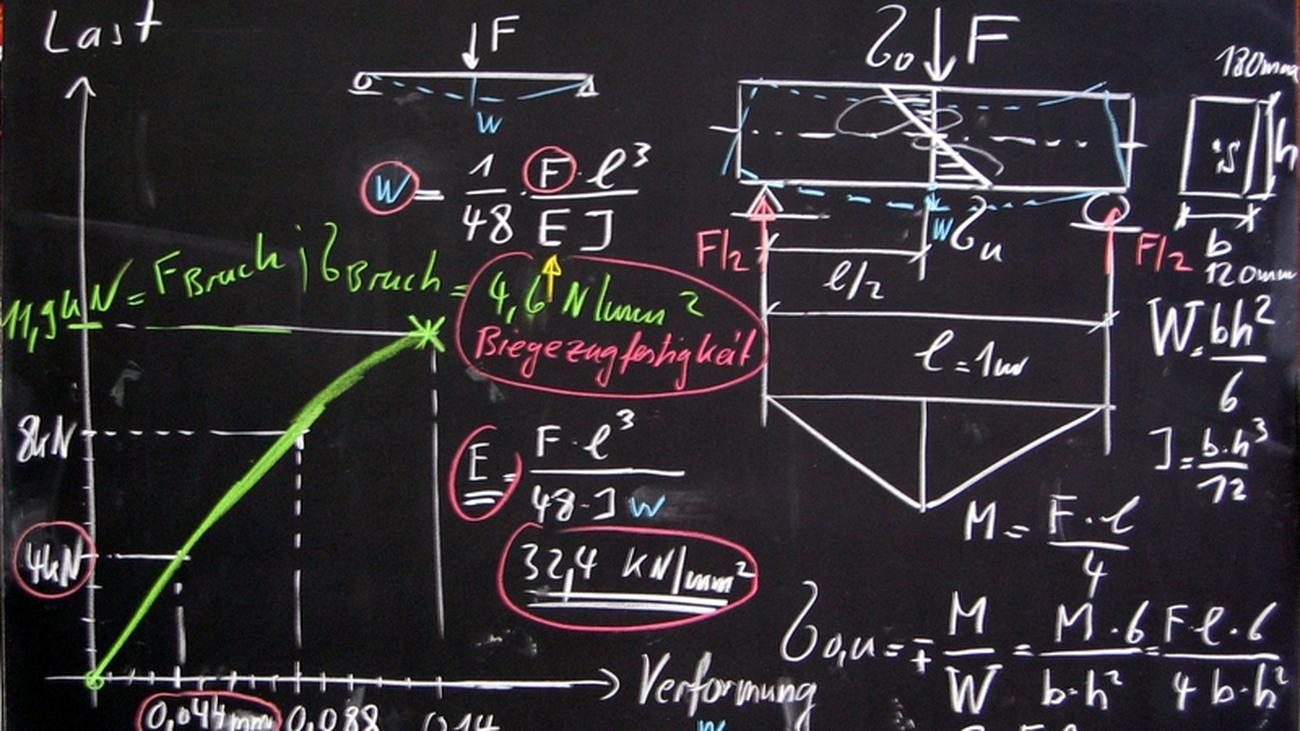 Last
F
w
w = 1/48 · F · l³ / E J
11,9 kN = F Bruch ; σ Bruch = 4,6 N/mm²
Biegezugfestigkeit
8kN
4kN
E = F · l³ / 48 · J w
32,4 kN/mm²
0,044mm 0,088 0,14
Verformung
w
σo F
w σu
F/2 F/2
l/2
l = 1m
180mm
h
b
120mm
W = bh²/6
J = b·h³/12
M = F·l/4
σo,u = ∓ M/W = M·6/b·h² = F·l·6/4 b·h²